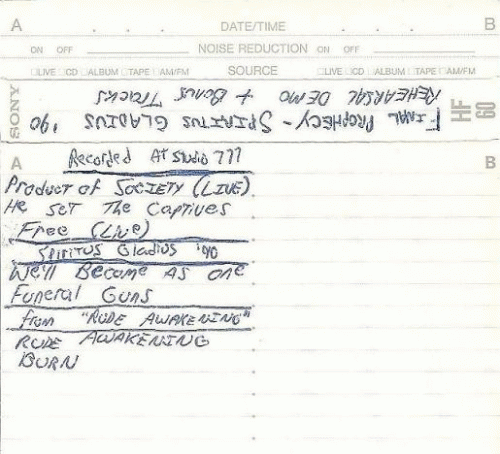 A DATE/TIME B
ON OFF NOISE REDUCTION ON OFF
LIVE CD ALBUM TAPE AM/FM SOURCE LIVE CD ALBUM TAPE AM/FM
SONY HF 60
FINAL PROPHECY - SPIRITUS GLADIUS '90
REHEARSAL DEMO + BONUS TRACKS
A B
Recorded AT Studio 777
Product of SOCIETY (LIVE)
He SET The CAPTIVES
Free (Live)
SPIRITUS Gladius '90
We'll Become AS one
Funeral Guns
from "RUDE AWAKENING"
RUDE AWAKENING
BURN